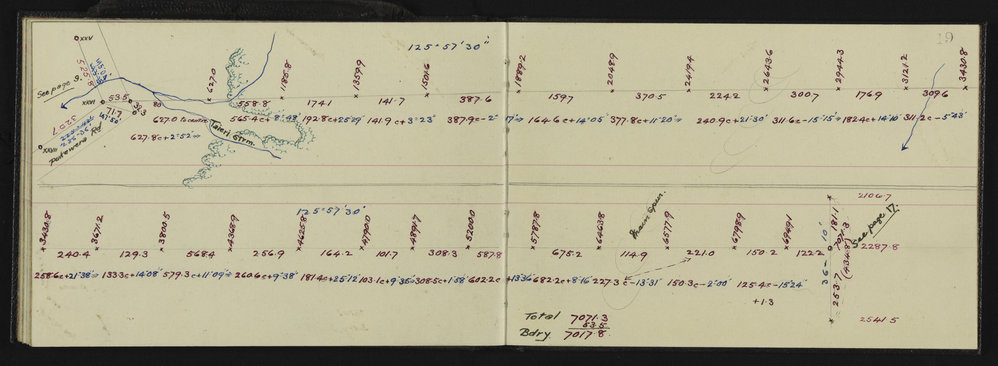 19
125° 57' 30"
XXV
525.8
See page 9.
XXVI
53.5
71.7
320.7
Patewera Rd
XXVII
627.0
1185.8
1359.9
1501.6
1889.2
2048.9
2419.4
2643.6
2944.3
3121.2
3430.8
558.8 174.1 141.7 387.6 159.7 370.5 224.2 300.7 176.9 309.6
627.0 to centre 565.4c+8°48' 192.8c+25°29' 141.9c+3°23' 387.9c-2° 17' 164.6c+14°05' 377.8c+11°20' 240.9c+21°30' 311.6c-15°15' 182.4c+14°10' 311.2c-5°43'
627.8c+2°52'
Taieri Strm.
125°57'30"
3430.8
3671.2
3800.5
4368.9
4625.8
4790.0
4891.7
5200.0
5787.8
6463.8
6577.9
6798.9
6949.1
2106.7
181.1
7071.3
(434.8)
See page 17.
2287.8
Main Spur.
240.4 129.3 568.4 256.9 164.2 101.7 308.3 587.8 675.2 114.9 221.0 150.2 122.2
36° 10'
258.6c+21°38' 133.3c+14°08' 579.3c+11°09' 260.6c+9°38' 181.4c+25°12' 103.1c+9°35' 308.5c+1°58' 602.2c+13°36' 682.2c+8°16' 227.3c-13°31' 150.3c-2°00' 125.4c-15°24'
+1.3
253.7
2541.5
Total 7071.3
53.5
Bdry 7017.8